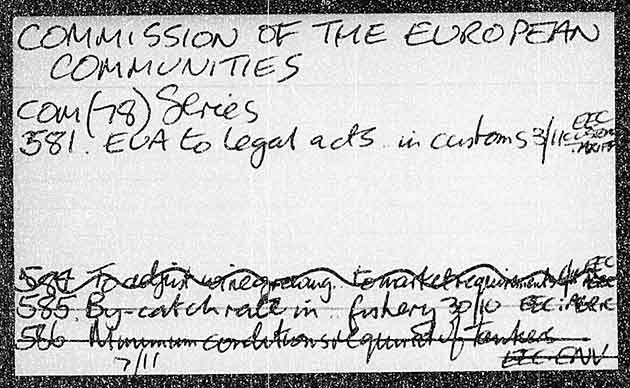 COMMISSION OF THE EUROPEAN
COMMUNITIES
COM(78) Series
581. EUA to legal acts in customs 3/11 EEC
CUSTOMS
TARIFF
584 To adjust winegrowing to market requirements EEC
585. By-catch rate in fishery 30/10 EEC:
586 Minimum conditions required of tankers
7/11 EEC ENV